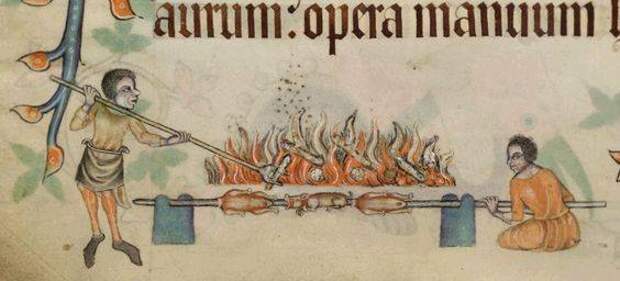 aurum: opera manuum